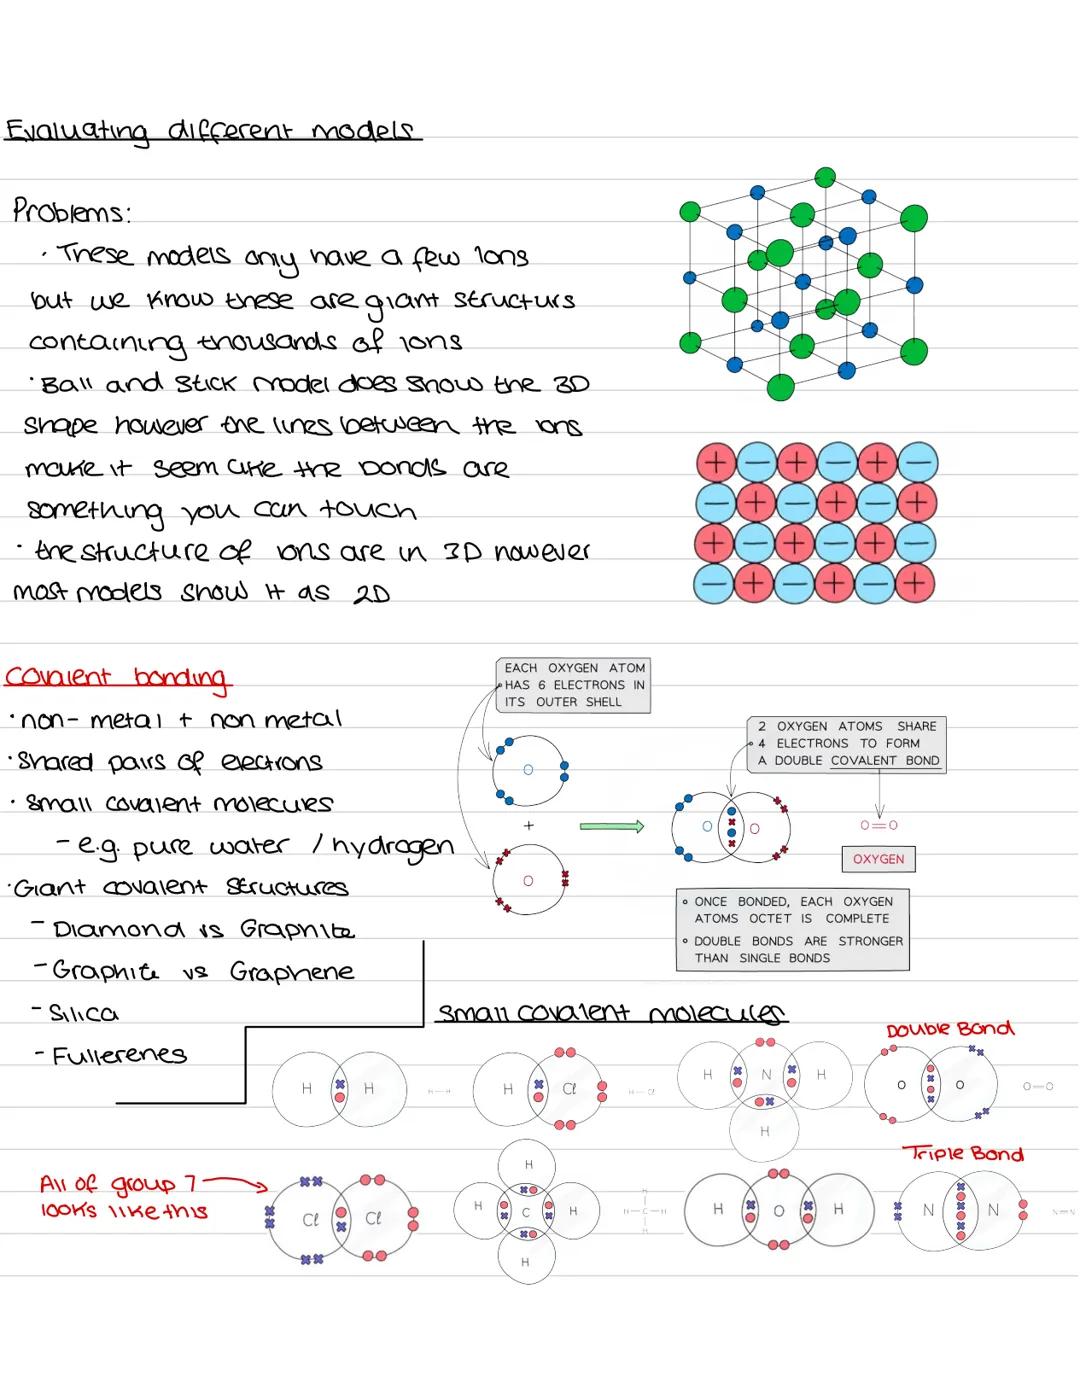 Evaluating different models
Problems:
· These models only have a few ions
but we know these are giant structurs
containing thousands of ions
· Ball and stick model does show the 3D
shape however the lines between the ions
make it seem like the bonds are
something you can touch
· the structure of ions are in 3D however
most models show it as 2D
+ − + − + −
− + − + − +
+ − + − + −
− + − + − +
Covalent bonding
· non-metal + non metal
· Shared pairs of electrons
· Small covalent molecules
- e.g. pure water / hydrogen
· Giant covalent structures
- Diamond vs Graphite
- Graphite vs Graphene
- Silica
- Fullerenes
EACH OXYGEN ATOM
HAS 6 ELECTRONS IN
ITS OUTER SHELL
O
+
O
2 OXYGEN ATOMS SHARE
4 ELECTRONS TO FORM
A DOUBLE COVALENT BOND
O O
O=O
OXYGEN
ONCE BONDED, EACH OXYGEN
ATOMS OCTET IS COMPLETE
DOUBLE BONDS ARE STRONGER
THAN SINGLE BONDS
Small covalent molecules
Double Bond
H H
H-H
H Cl
H-Cl
H N H
H
O O
O=O
Triple Bond
All of group 7
looks like this
Cl Cl
H
H C H
H
H
H-C-H
H
H O H
N N
N≡N